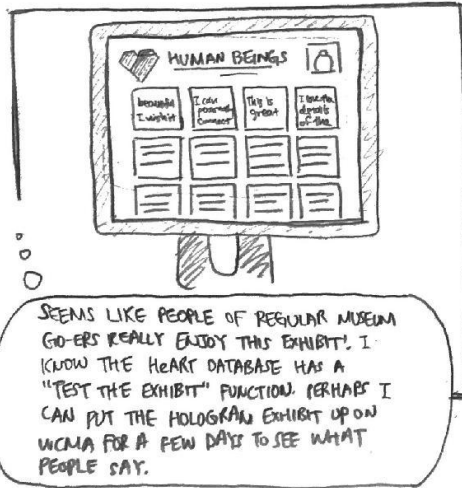 HUMAN BEINGS
beautiful
I wish it
I can
personally
connect
This is
great
I love the
details
of the
SEEMS LIKE PEOPLE OF REGULAR MUSEUM
GO-ERS REALLY ENJOY THIS EXHIBIT! I
KNOW THE HeART DATABASE HAS A
"TEST THE EXHIBIT" FUNCTION. PERHAPS I
CAN PUT THE HOLOGRAN EXHIBIT UP ON
WCMA FOR A FEW DAYS TO SEE WHAT
PEOPLE SAY.